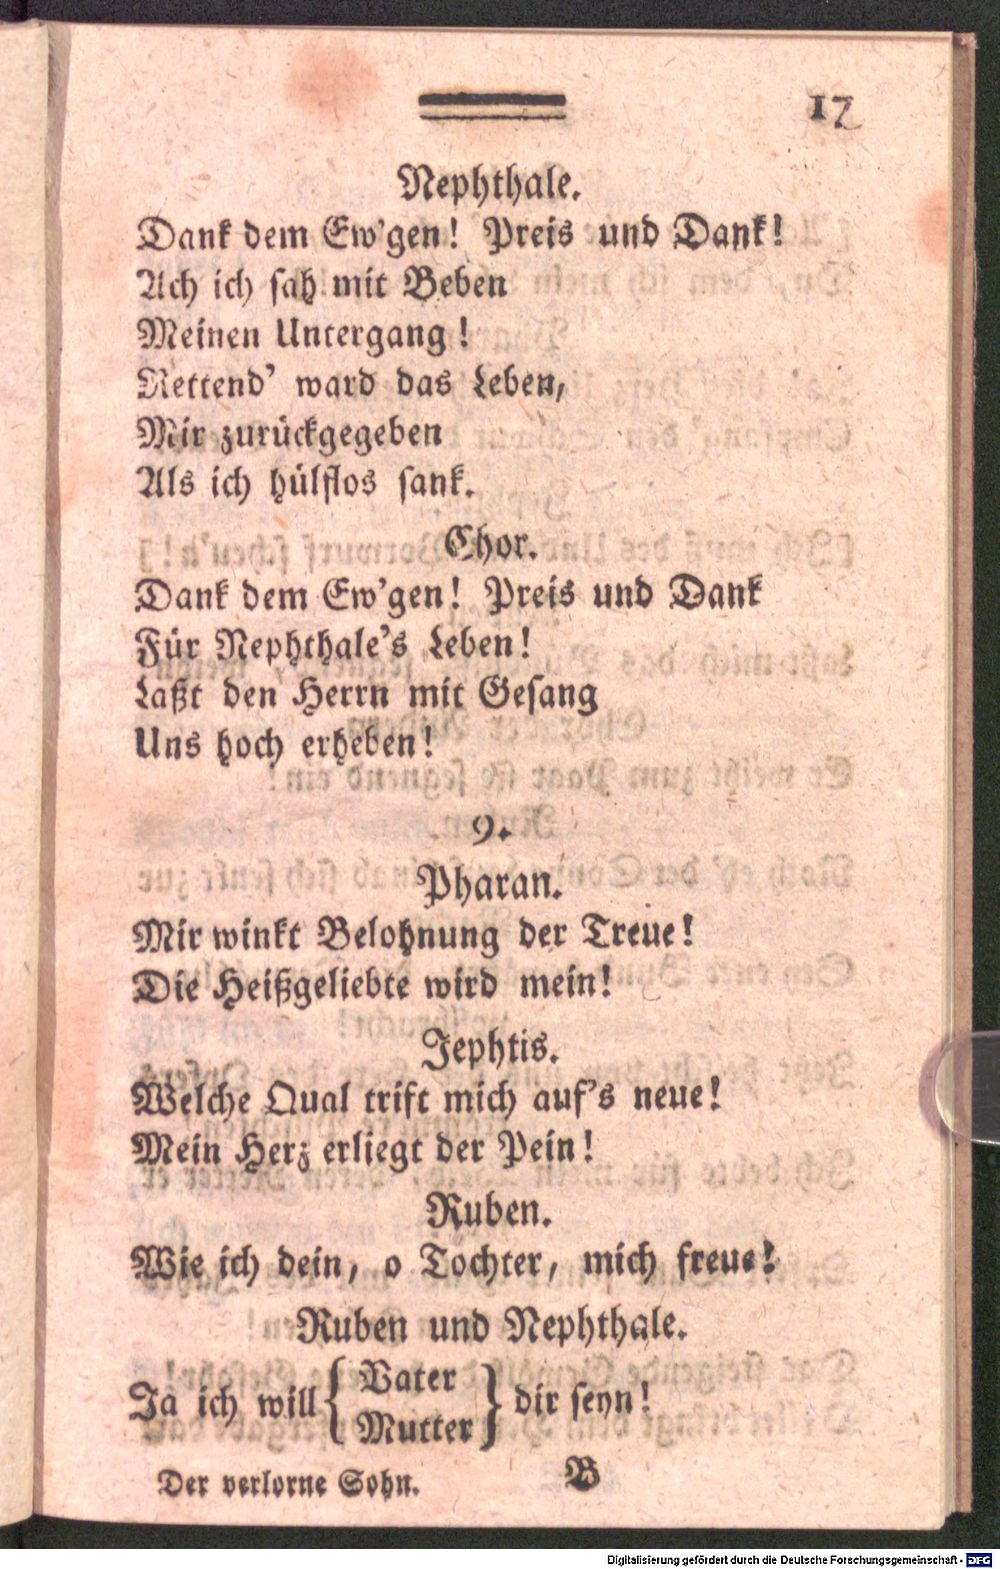 17
Nephthale.
Dank dem Ew'gen! Preis und Dank!
Ach ich sah mit Beben
Meinen Untergang!
Rettend' ward das Leben,
Mir zurückgegeben
Als ich hülflos sank.
Chor.
Dank dem Ew'gen! Preis und Dank
Für Nephthale's Leben!
Laßt den Herrn mit Gesang
Uns hoch erheben!
9.
Pharan.
Mir winkt Belohnung der Treue!
Die Heißgeliebte wird mein!
Jephtis.
Welche Qual trift mich auf's neue!
Mein Herz erliegt der Pein!
Ruben.
Wie ich dein, o Tochter, mich freue!
Ruben und Nephthale.
Ja ich will { Vater Mutter } dir seyn!
Der verlorne Sohn. B
Digitalisierung gefördert durch die Deutsche Forschungsgemeinschaft - DFG